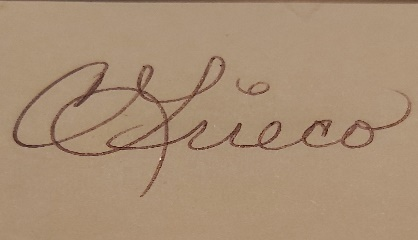 C Grieco